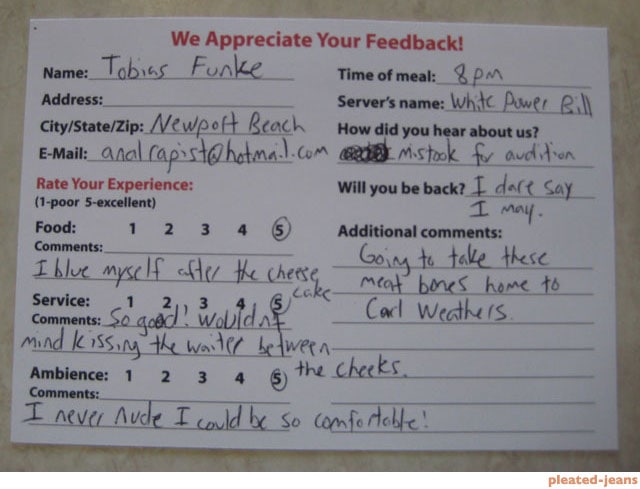 We Appreciate Your Feedback!
Name: Tobias Funke
Address:
City/State/Zip: Newport Beach
E-Mail: analrapist@hotmail.com
Rate Your Experience:
(1-poor 5-excellent)
Food: 1 2 3 4 5
Comments:
I blue myself after the cheese
cake
Service: 1 2 3 4 5
Comments: So good! Wouldnt
mind kissing the waiter between
the cheeks.
Ambience: 1 2 3 4 5
Comments:
I never nude I could be so comfortable!
Time of meal: 8pm
Server's name: White Power Bill
How did you hear about us?
Mistook for audition
Will you be back? I dare say
I may.
Additional comments:
Going to take these
meat bones home to
Carl Weathers.
pleated-jeans